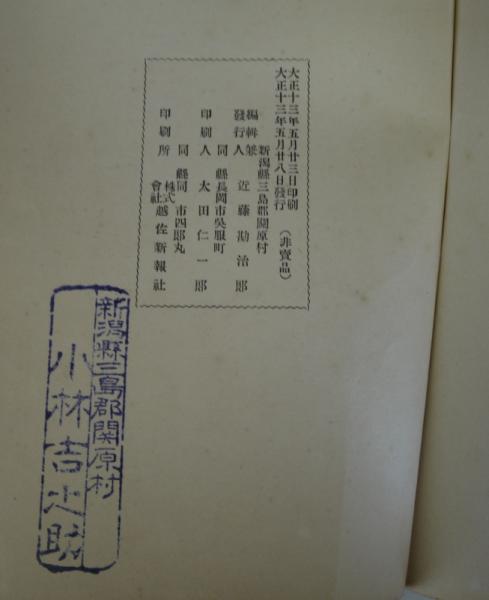 大正十三年五月廿三日印刷
大正十三年五月廿八日發行
（非賣品）
新潟縣三島郡關原村
編輯兼發行人 近藤勘治郎
同縣長岡市吳服町
印刷人 大田仁一郎
同縣同市四郎丸
印刷所 株式會社 越佐新報社
新潟縣三島郡関原村
小林吉之助